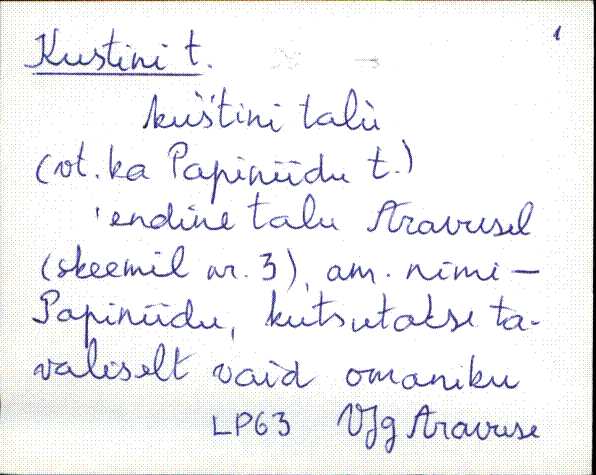 1
Kustini t.
kuštini talù
(vt. ka Papiniidu t.)
'endine talu Aravusel
(skeemil nr. 3), am. nimi –
Papiniidu, kutsutakse ta-
valiselt vaid omaniku
LP63 VJg Aravuse